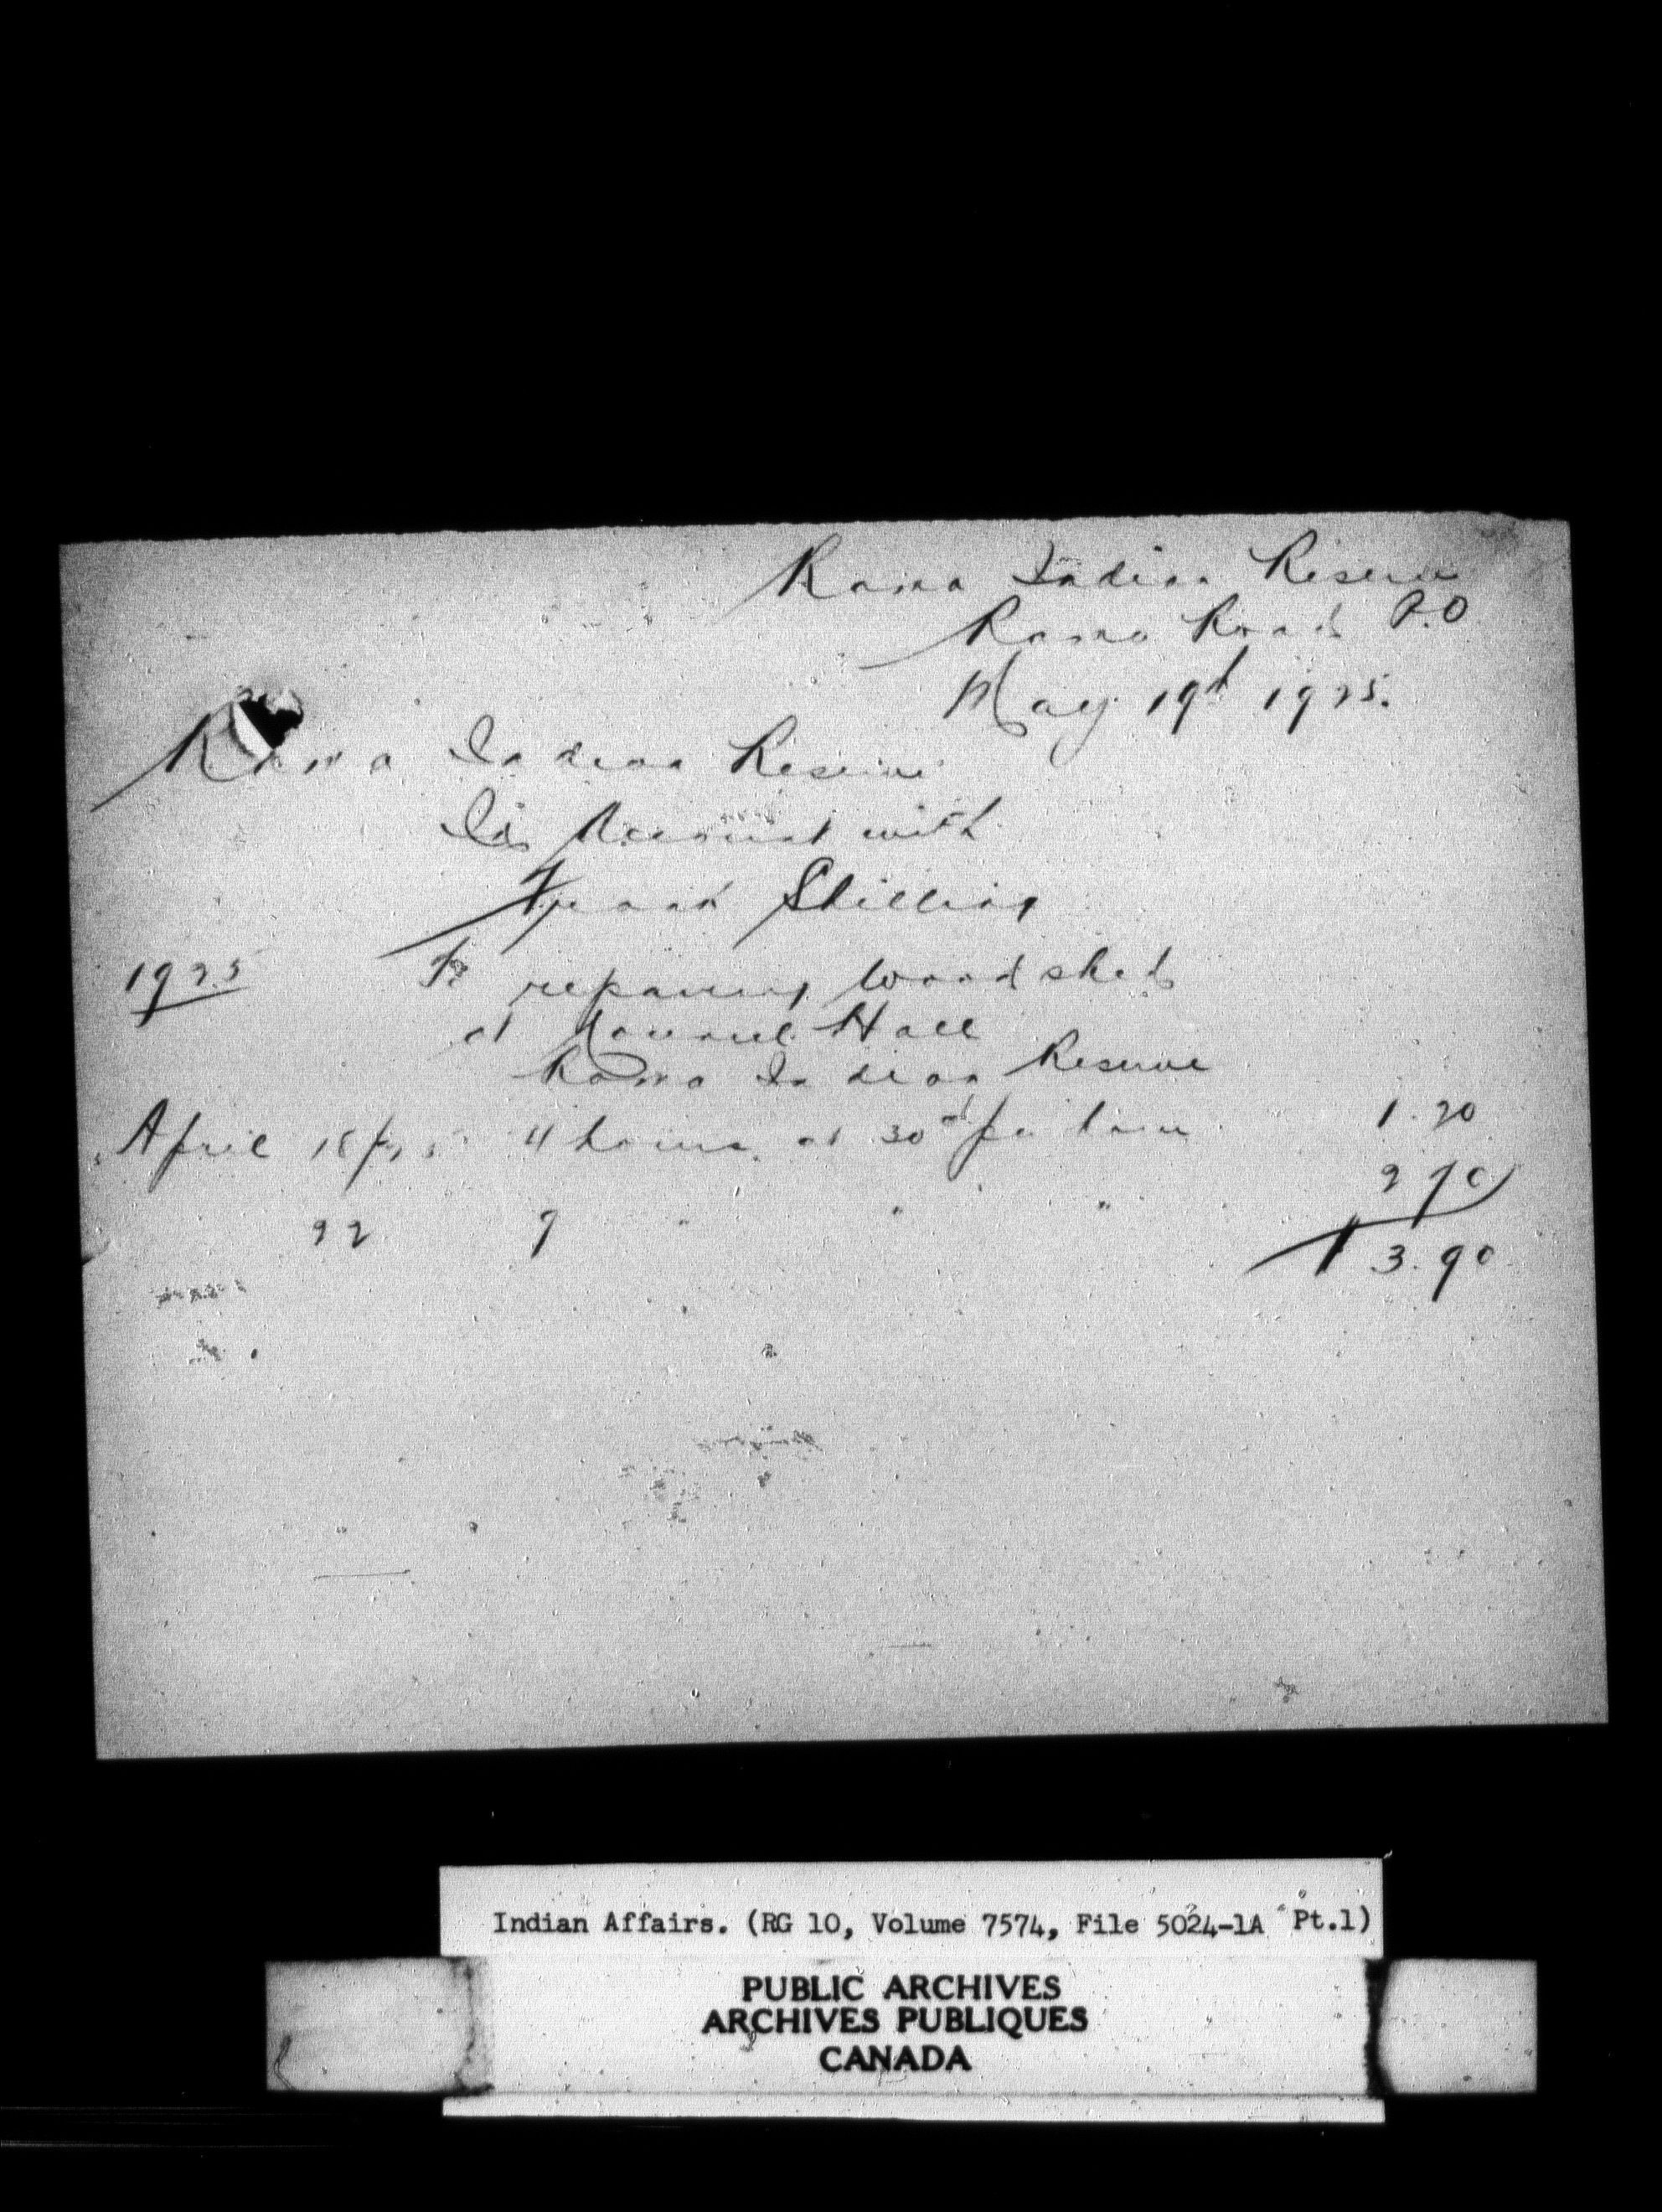 Rama Indian Reserve
Rama Road P.O
May 19th 1925.
Rama Indian Reserve
In Account with
Frank Shilling
1925 To repairing Wood shed
at Council Hall
Rama Indian Reserve
April 18th 4 hours at 30cts per hour 1.20
22 9 " " " 2 70
$ 3.90
Indian Affairs. (RG 10, Volume 7574, File 5024-1A Pt.1)
PUBLIC ARCHIVES
ARCHIVES PUBLIQUES
CANADA